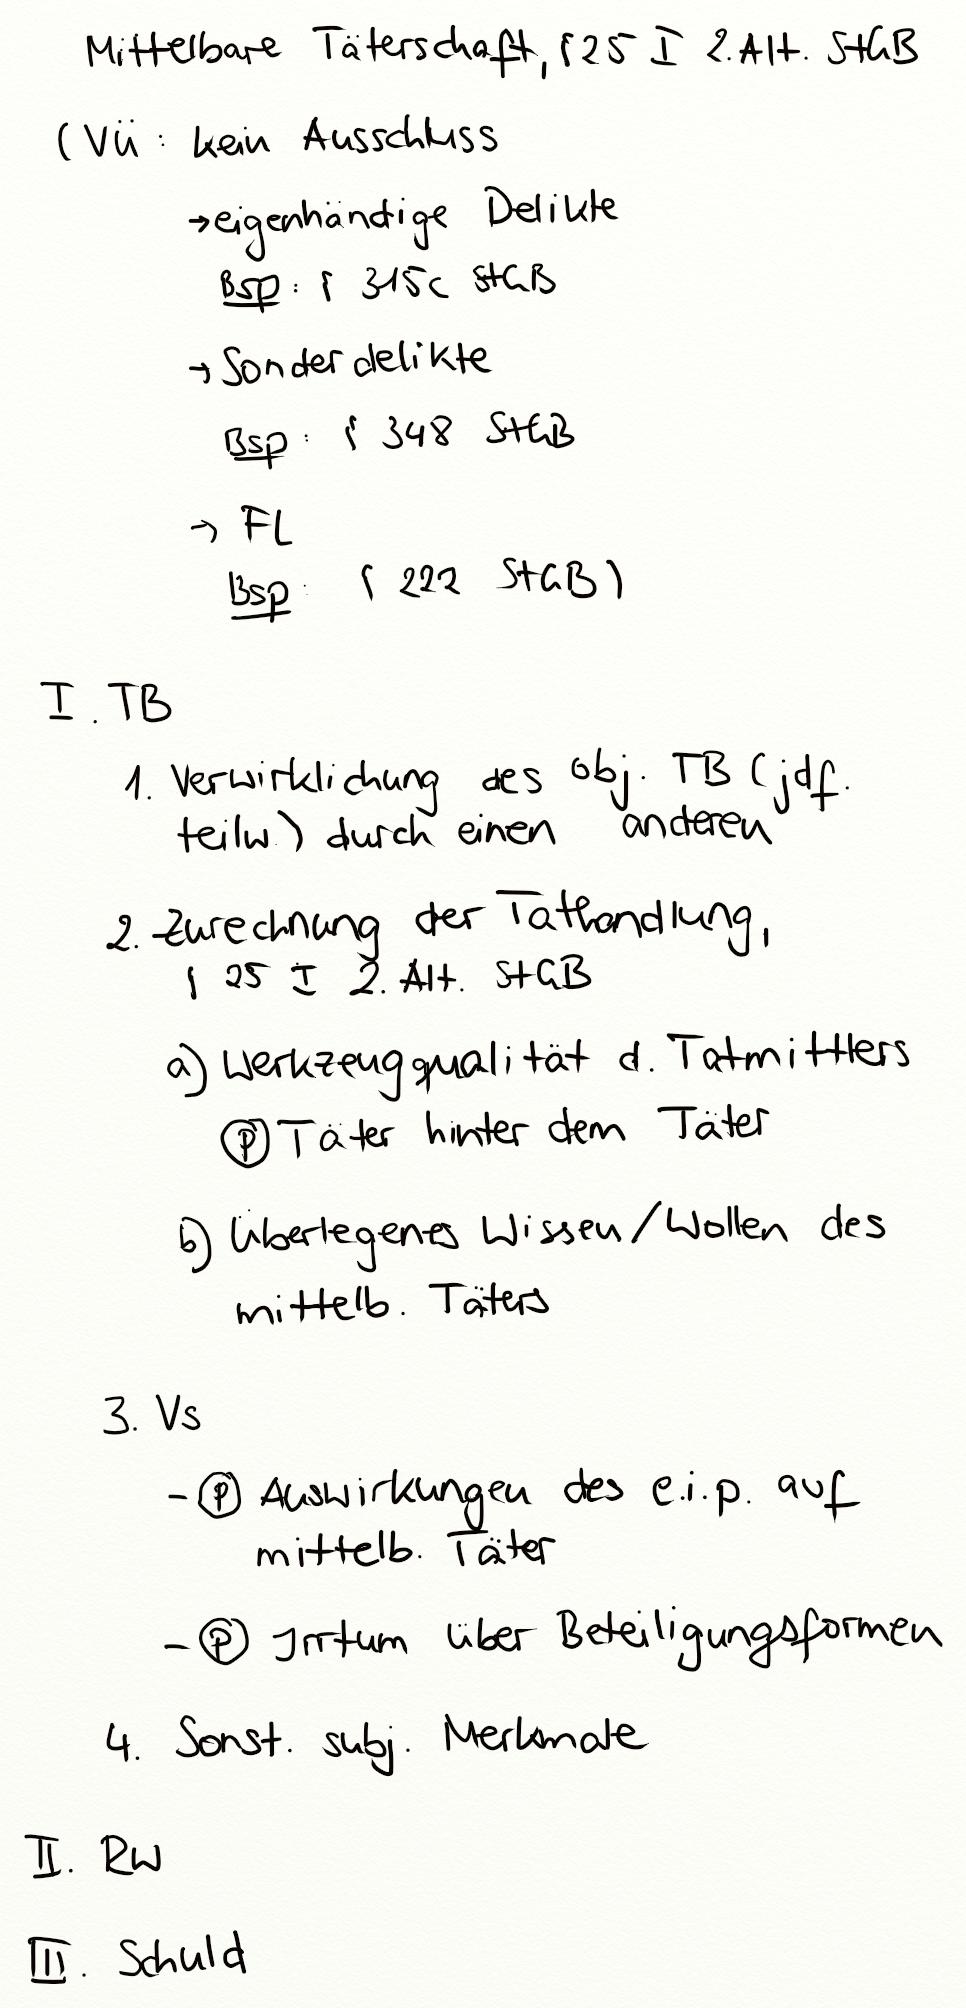 Mittelbare Täterschaft, § 25 I 2. Alt. StGB
(Vü: kein Ausschluss
→ eigenhändige Delikte
Bsp: § 315c StGB
→ Sonderdelikte
Bsp: § 348 StGB
→ FL
Bsp: § 222 StGB)
I. TB
1. Verwirklichung des obj. TB (jdf.
teilw.) durch einen anderen
2. Zurechnung der Tathandlung,
§ 25 I 2. Alt. StGB
a) Werkzeugqualität d. Tatmittlers
Ⓟ Täter hinter dem Täter
b) Überlegenes Wissen/Wollen des
mittelb. Täters
3. Vs
- Ⓟ Auswirkungen des e.i.p. auf
mittelb. Täter
- Ⓟ Irrtum über Beteiligungsformen
4. Sonst. subj. Merkmale
II. RW
III. Schuld